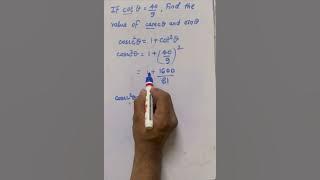 If cosθ = 40/9, Find the
value of cosecθ and sinθ
cosec²θ = 1 + cot²θ
cosec²θ = 1 + (40/9)²
= 1 + 1600/81
cosec²θ